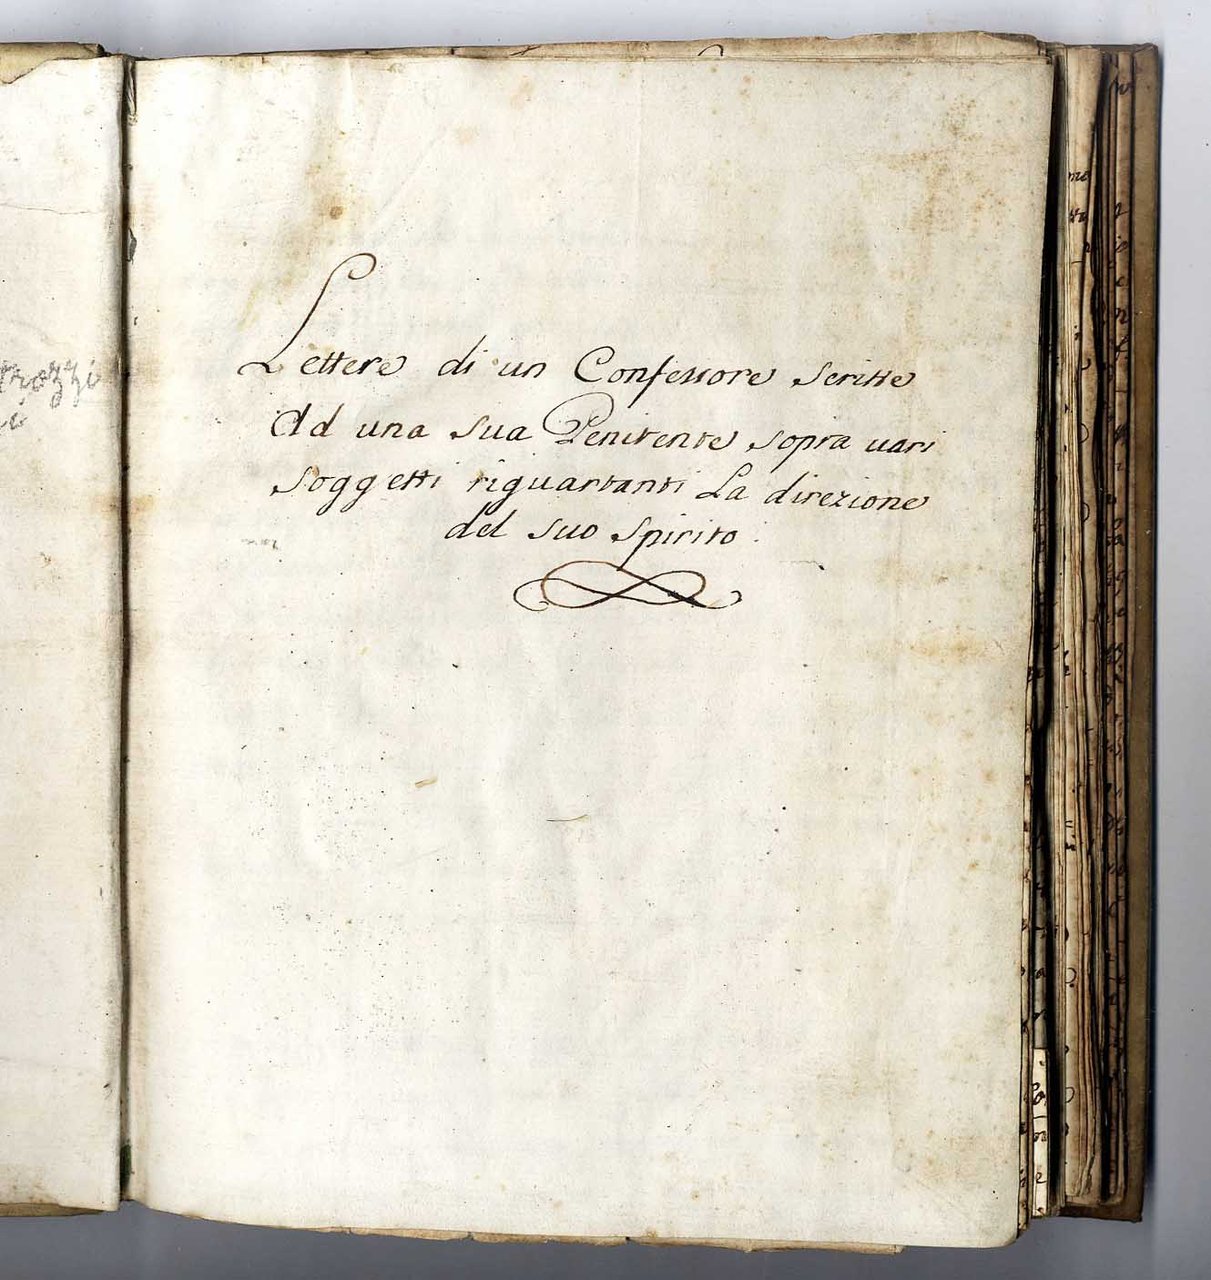 Lettere di un Confessore Scritte
Ad una sua Penitente sopra vari
soggetti riguartanti La direzione
del suo Spirito.